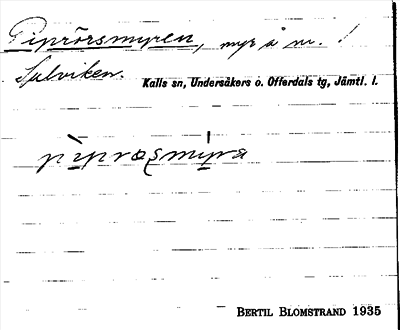 Piprörsmyren, myr å nr. 1
Sulviken.
Kalls sn, Undersåkers o. Offerdals tg, Jämtl. l.
BERTIL BLOMSTRAND 1935